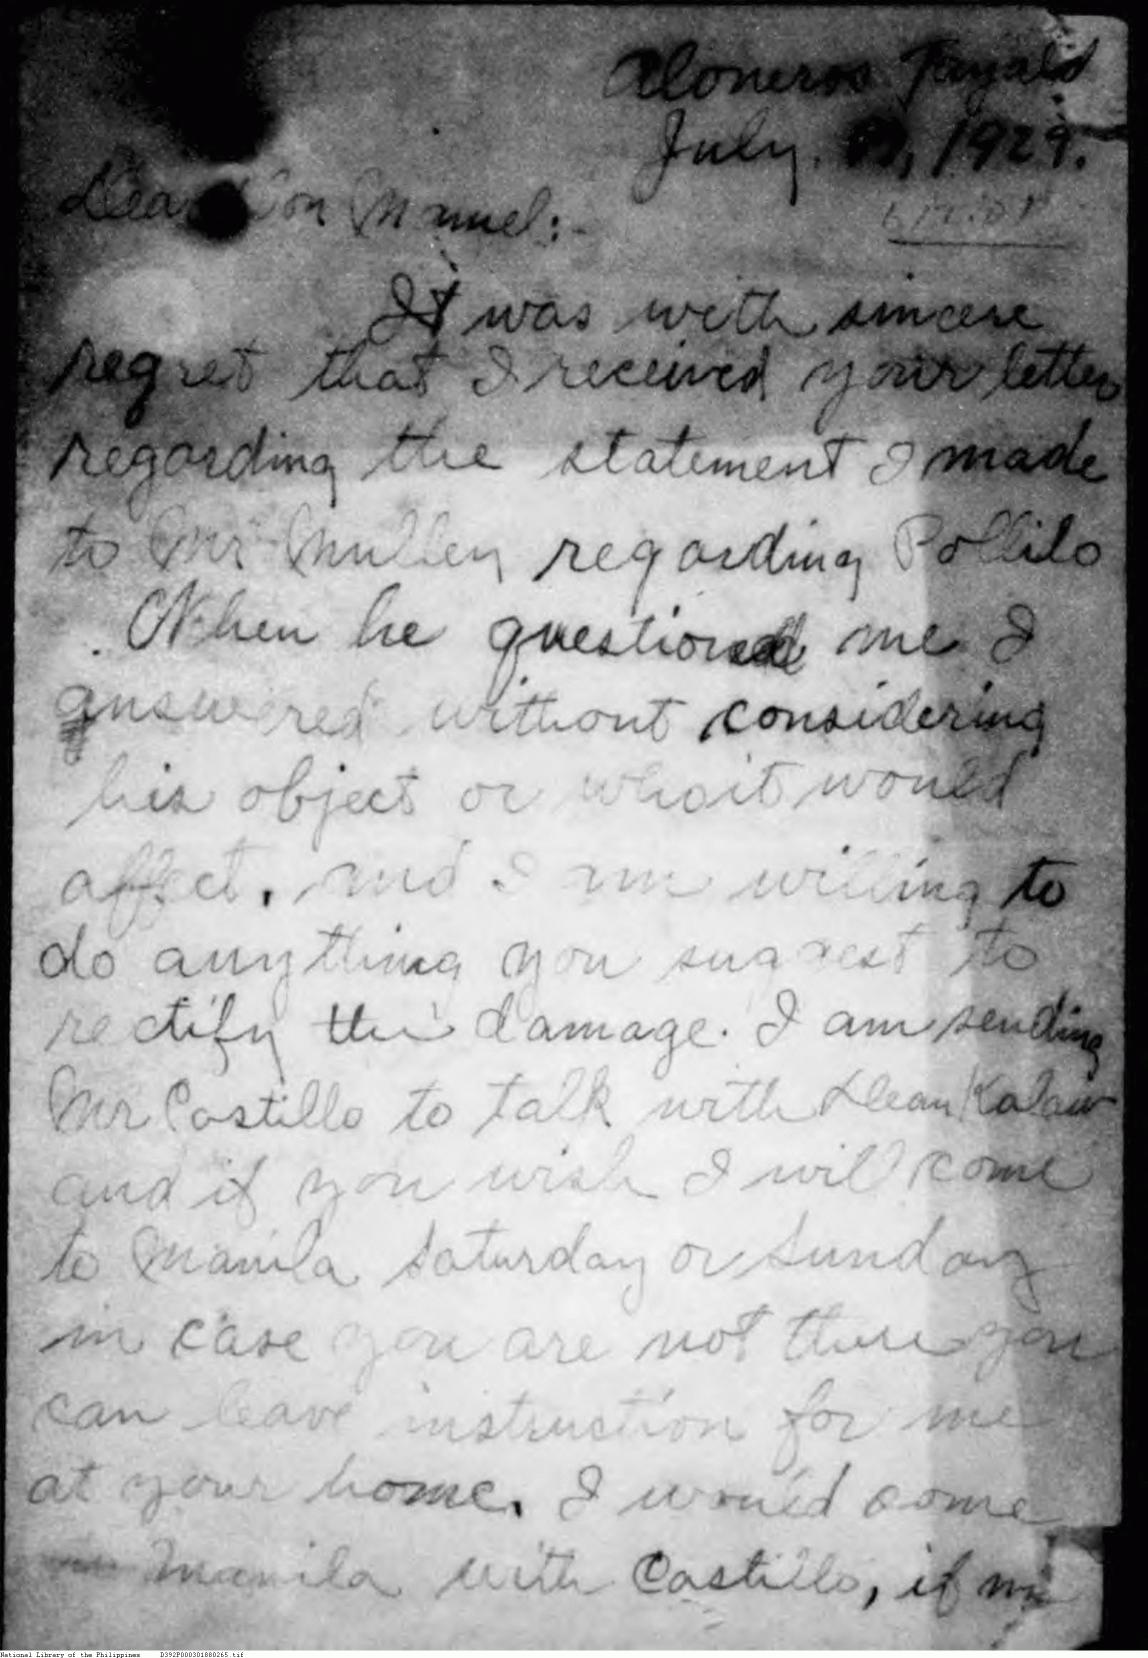 Aloneros Tayabas
July. , 1929.
Dear Don Manuel:-
It was with sincere
regret that I received your letter
regarding the statement I made
to Mr Mullen regarding Pollilo
. When he questioned me I
answered without considering
his object or who it would
affect. and I am willing to
do anything you suggest to
rectify the damage. I am sending
Mr Castillo to talk with Dean Kalaw
and if you wish I will come
to Manila Saturday or Sunday
in case you are not there you
can leave instruction for me
at your home. I would come
Manila with Castillo, if my
National Library of the Philippines D392P000301880265.tif